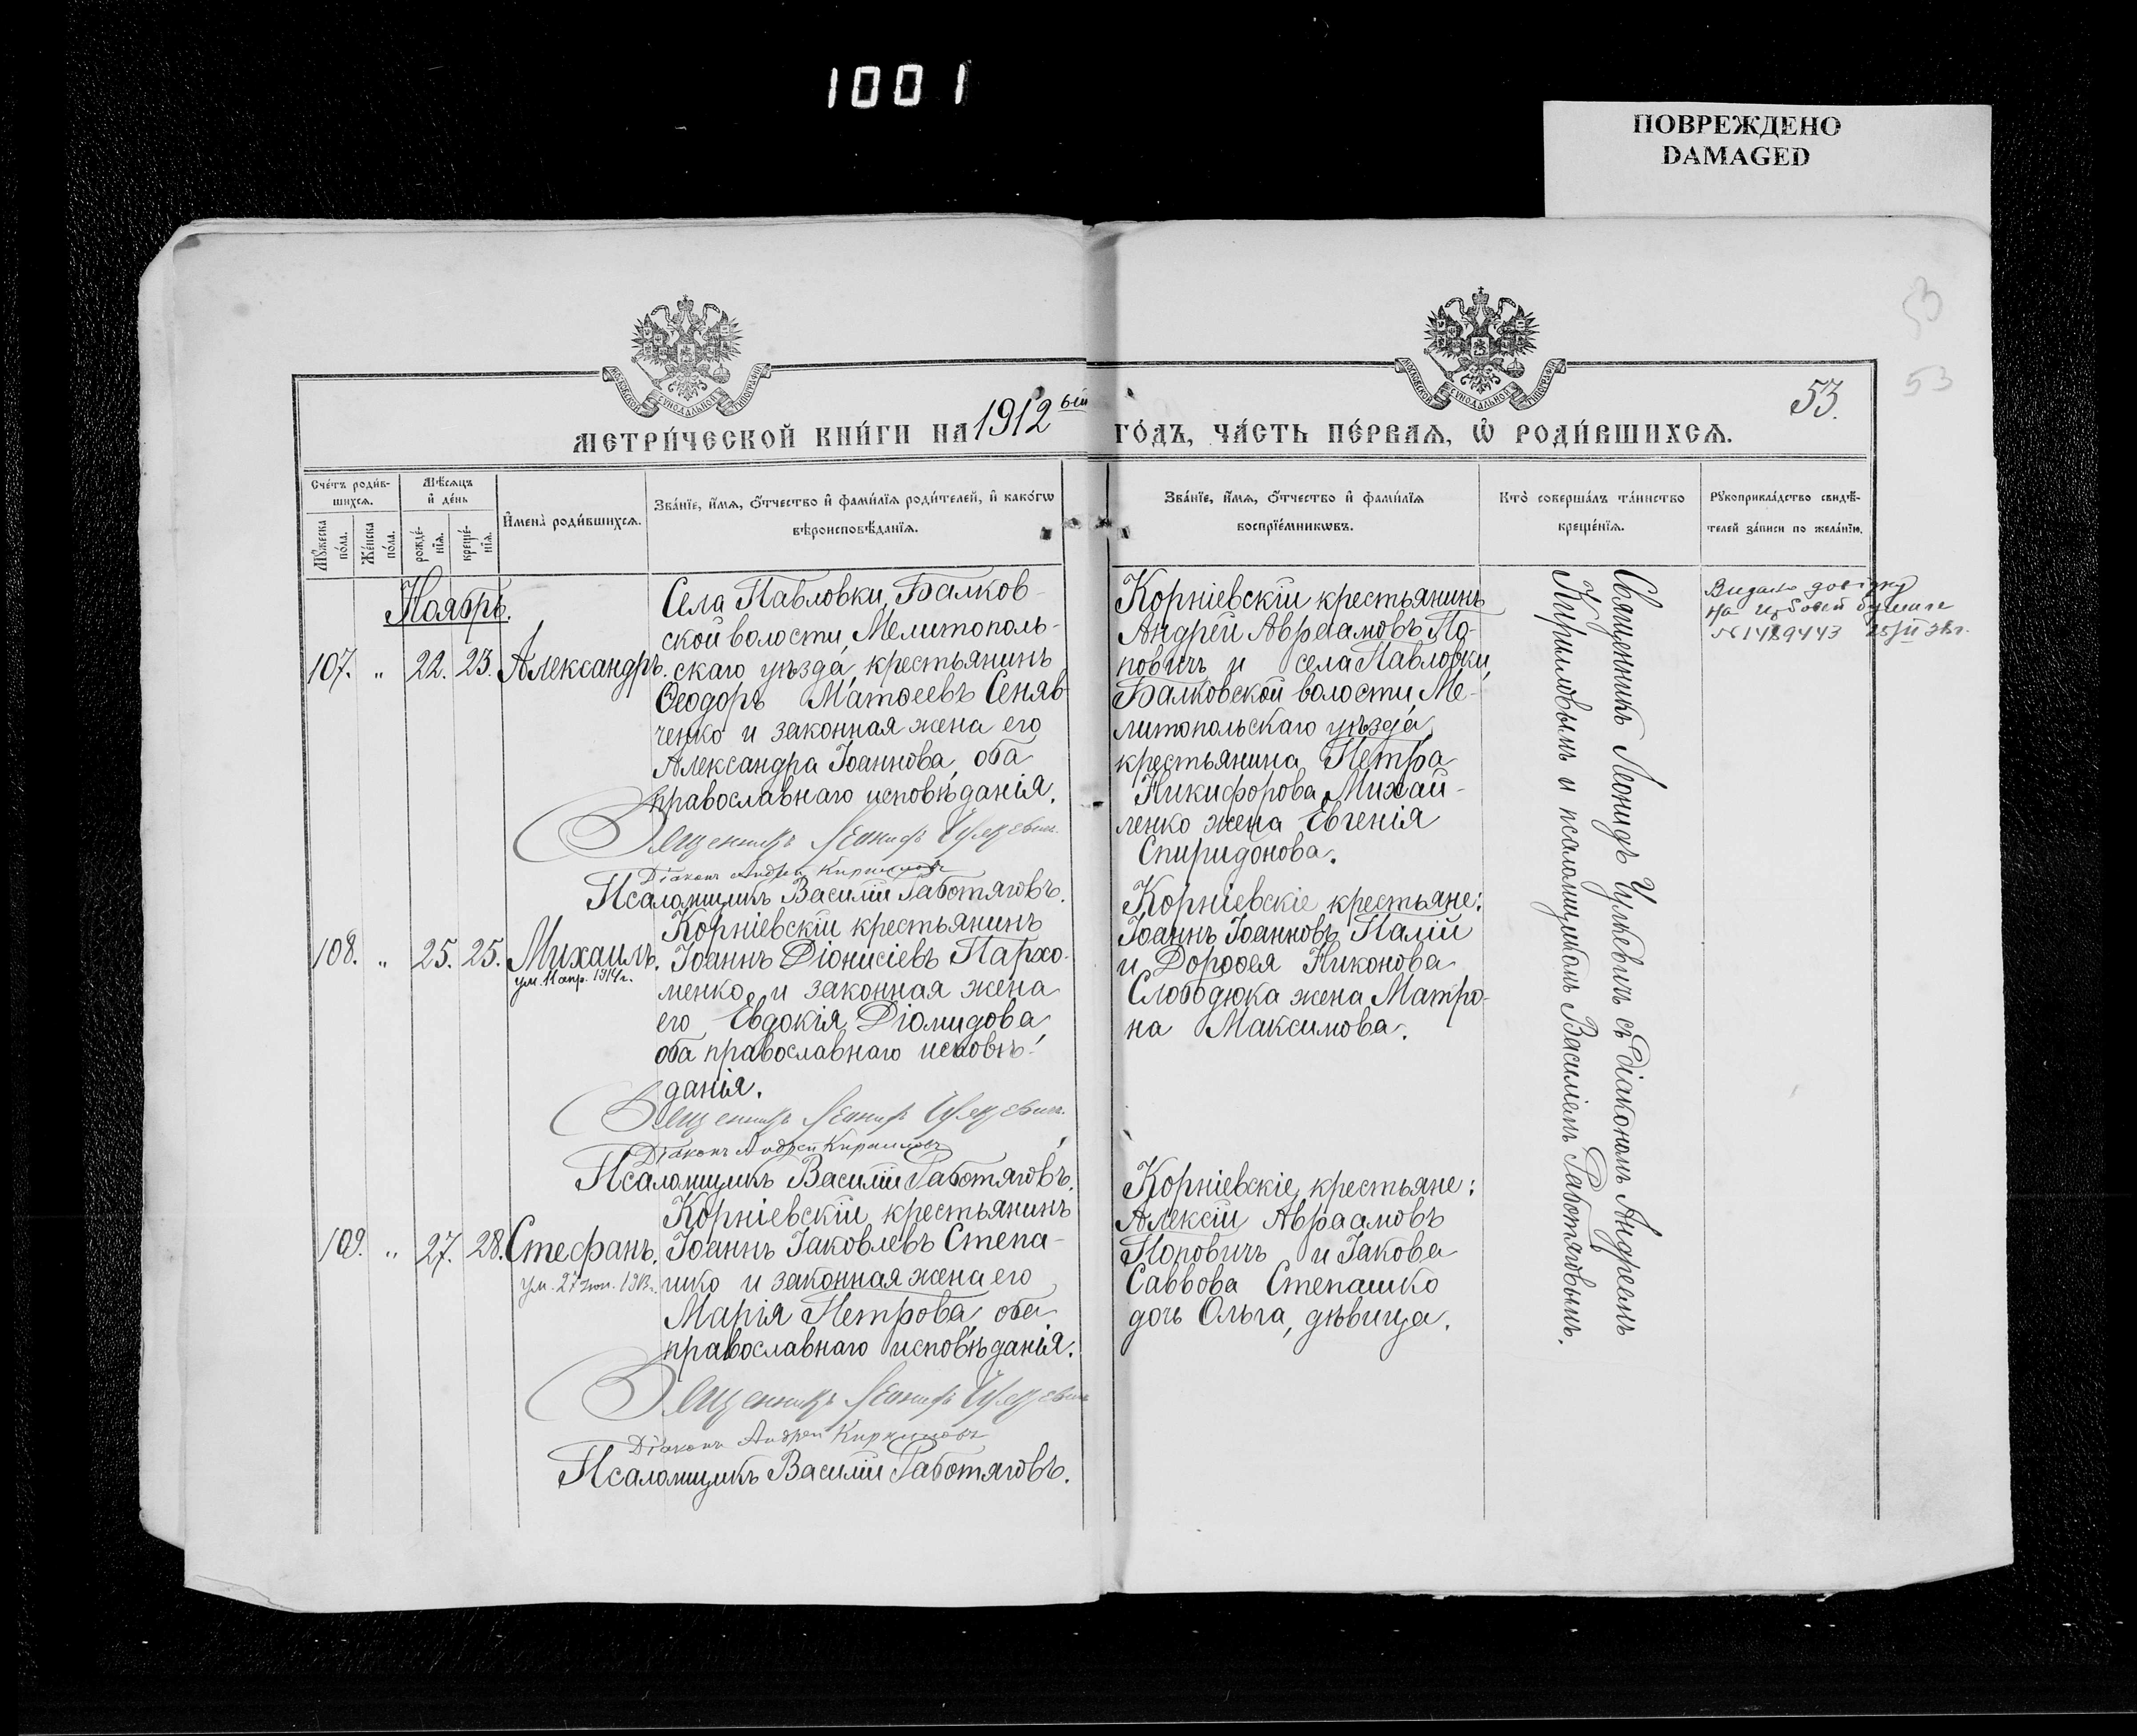 1001
ПОВРЕЖДЕНО
DAMAGED
53
53
53.
МОСКОВСКОЙ СѴНОДАЛЬНОЙ ТИПОГРАФІИ
МОСКОВСКОЙ СѴНОДАЛЬНОЙ ТИПОГРАФІИ
МЕТРИ́ЧЕСКОЙ КНИ́ГИ НА 1912ый ГО́ДЪ, ЧА́СТЬ ПЕ́РВАЯ, Ѽ РОДИ́ВШИХСЯ.
Сче́тъ роди́в-
шихся.
Мѣ́сяцъ
и де́нь
Мꙋ́жеска
по́ла.
Же́нска
по́ла.
рожде́-
нїя.
креще́-
нїя.
И҆мена̀ роди́вшихся.
Зва́нїе, и҆́мя, ѻ҆́тчество и҆ фами́лїя роди́телей, и҆ како́гѡ
вѣроисповѣ́данїя.
Зва́нїе, и҆́мя, ѻ҆́тчество и҆ фами́лїя
воспрїе́мникѡвъ.
Кто̀ соверша́лъ та́инство
креще́нїя.
Рꙋкоприкла́дство свидѣ́-
телей за́писи по жела́нїю.
Ноябрь.
107. „ 22. 23. Александръ.
Села Павловки, Балков-
ской волости, Мелитополь-
скаго уѣзда, крестьянинъ
Ѳеодоръ Матѳеевъ Сеняв-
ченко и законная жена его
Александра Іоаннова, оба
православнаго исповѣданія.
Священникъ Леонидъ Цулкевичъ.
Діаконъ Андрей Кирилловъ
Псаломщикъ Василій Работяговъ.
Корніевскій крестьянинъ
Андрей Авраамовъ По-
повичъ и села Павловки,
Балковской волости, Ме-
литопольскаго уѣзда,
крестьянина Петра
Никифорова Михай-
ленко жена Евгенія
Спиридонова.
Священникъ Леонидъ Цулкевичъ съ діакономъ Андреемъ
Кирилловымъ и псаломщикомъ Василіемъ Работяговымъ.
Видано довідку
на
№ 1489443 25/II
108. „ 25. 25. Михаилъ.
ум. 11 апр. 1914 г.
Корніевскій крестьянинъ
Іоаннъ Діонисіевъ Пархо-
менко и законная жена
его Евдокія Діомидова,
оба православнаго исповѣ-
данія.
Священникъ Леонидъ Цулкевичъ.
Діаконъ Андрей Кирилловъ
Псаломщикъ Василій Работяговъ.
Корніевскіе крестьяне:
Іоаннъ Іоанновъ Палій
и Дороѳея Никонова
Слободюка жена Матро-
на Максимова.
109. „ 27. 28. Стефанъ.
ум. 27 1913 г.
Корніевскій крестьянинъ
Іоаннъ Іаковлевъ Степа-
шко и законная жена его
Марія Петрова, оба
православнаго исповѣданія.
Священникъ Леонидъ Цулкевичъ
Діаконъ Андрей Кирилловъ
Псаломщикъ Василій Работяговъ.
Корніевскіе крестьяне:
Алексій Авраамовъ
Поповичъ и Іакова
Саввова Степашко
дочь Ольга, дѣвица.